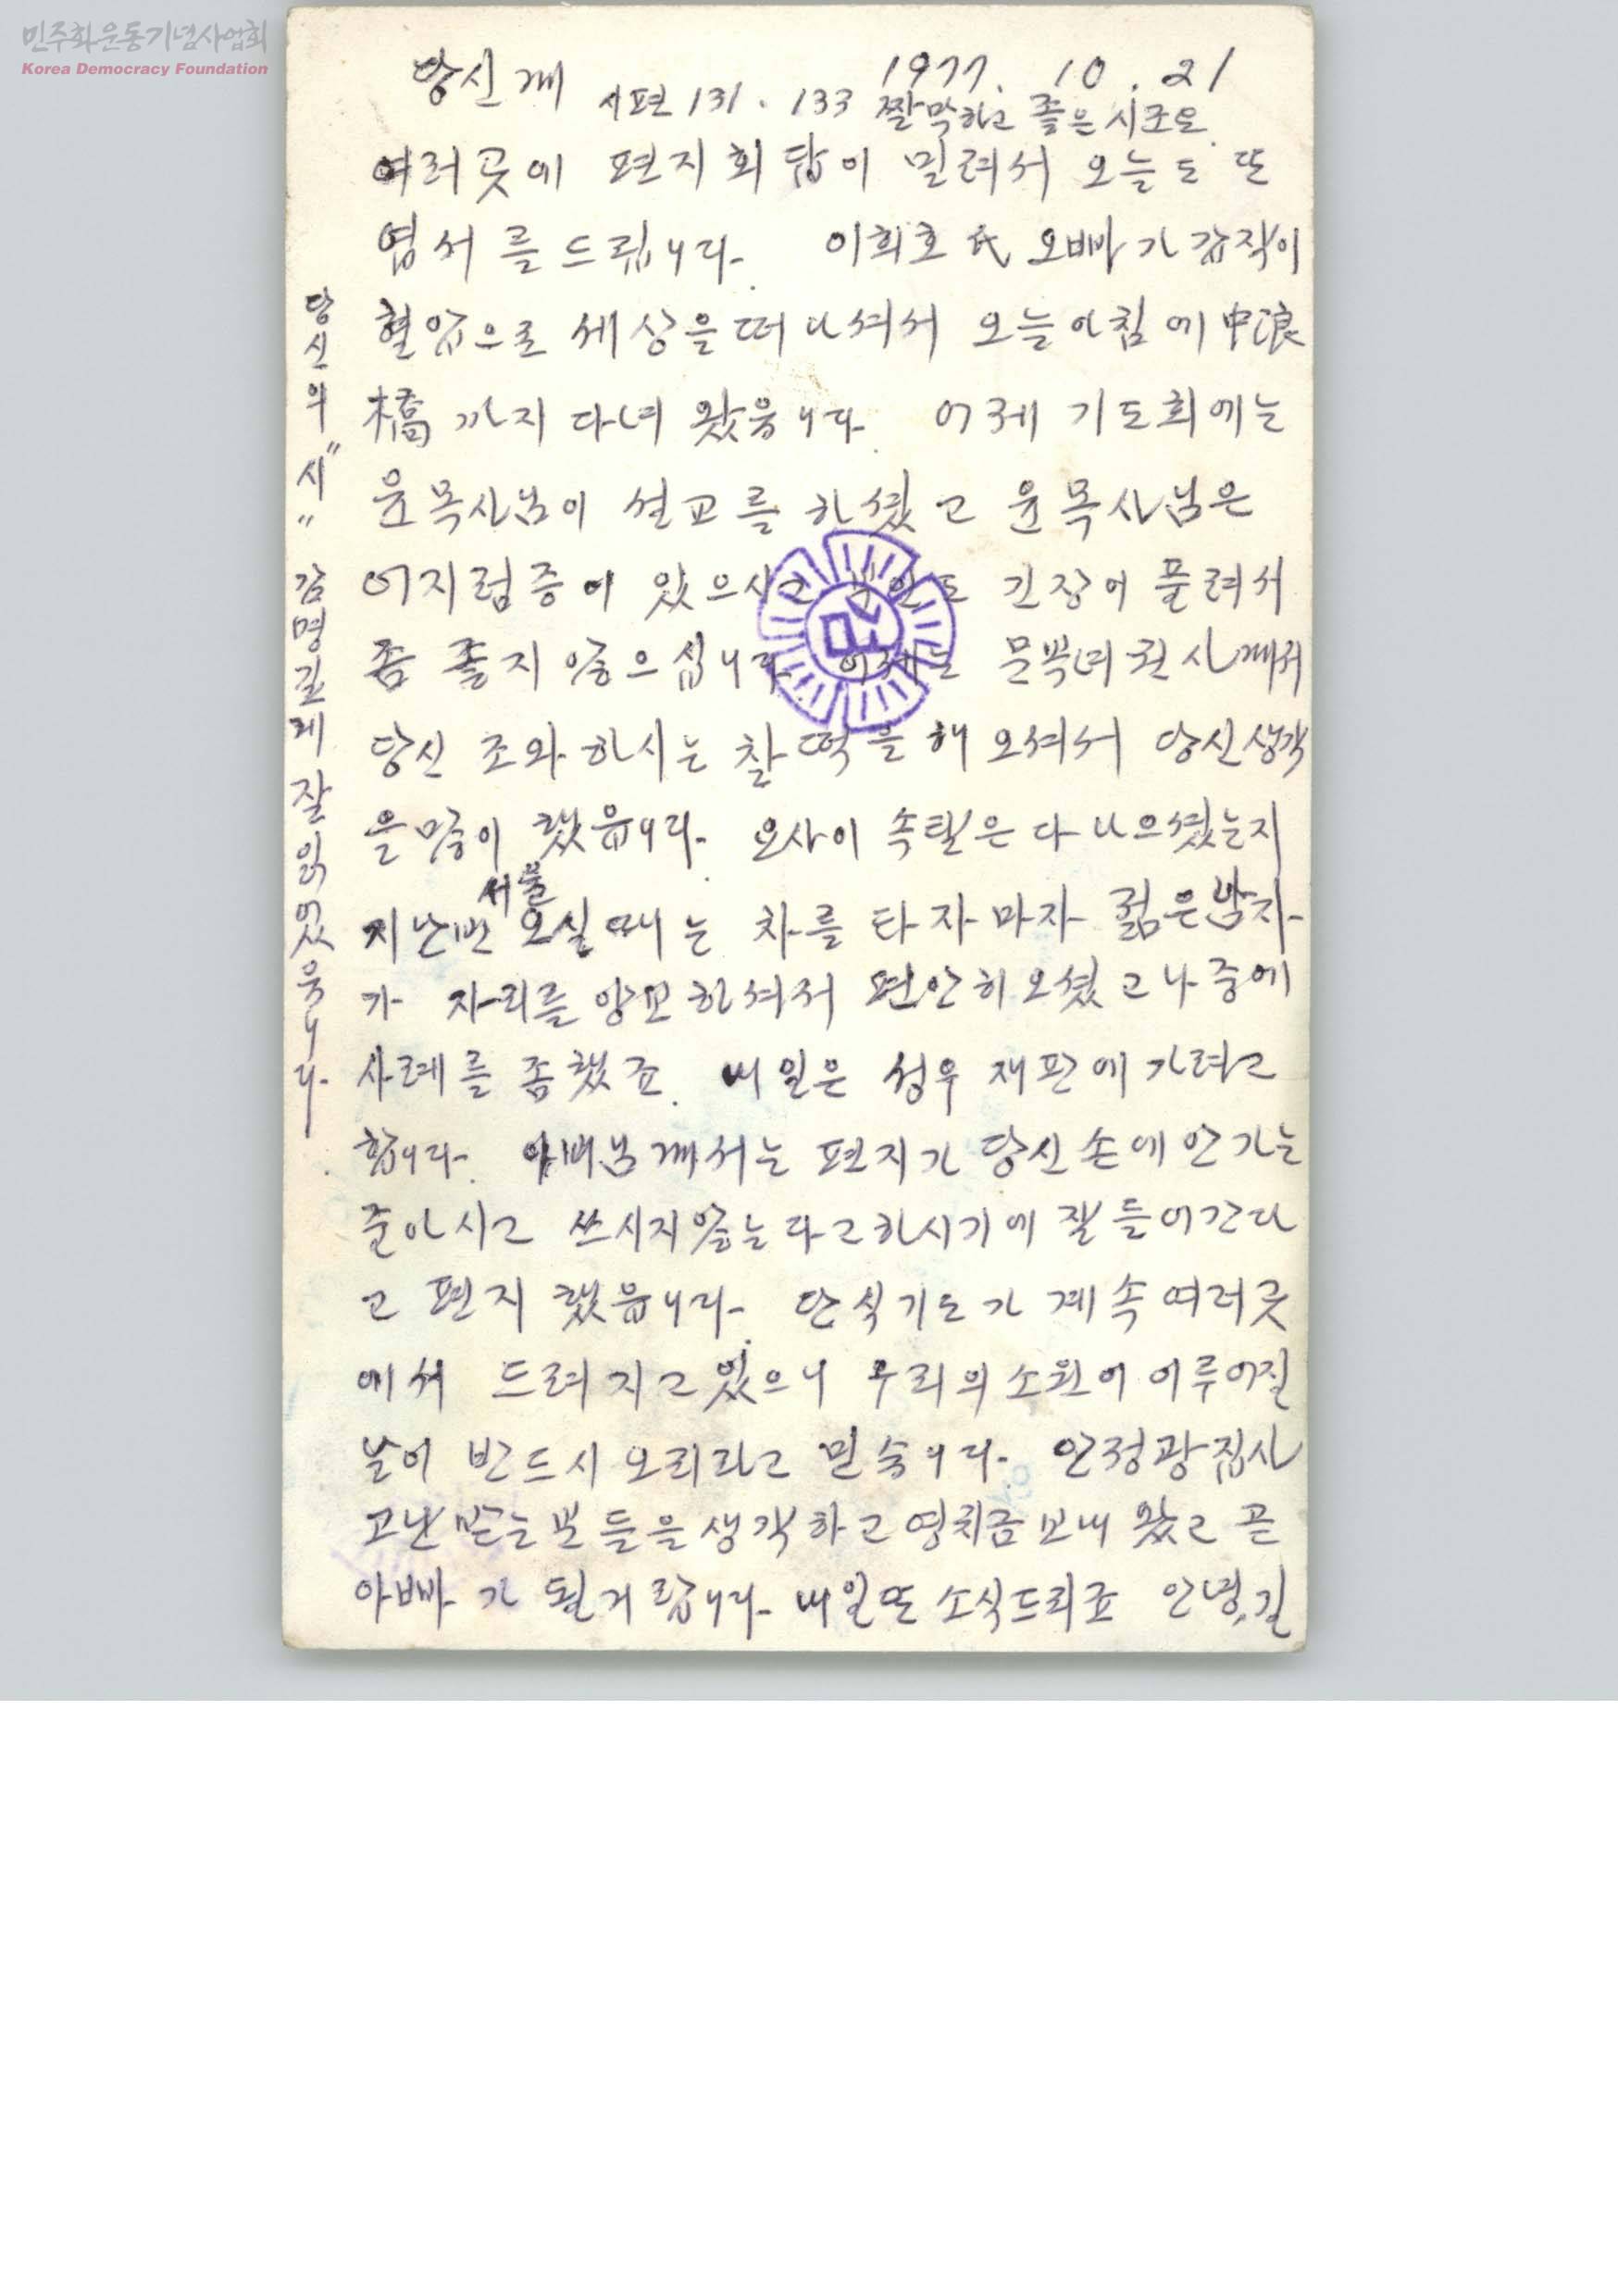 민주화운동기념사업회
Korea Democracy Foundation
당신께 1977. 10. 21
시편 131. 133 짤막하고 좋은 시군요.
여러곳에 편지 회답이 밀려서 오늘도 또
엽서를 드립니다. 이희호 氏 오빠가 갑작이
혈압으로 세상을 떠나셔서 오늘 아침에 中浪
橋까지 다녀 왔읍니다. 어제 기도회에는
윤목사님이 설교를 하셨고 윤목사님은
어지럼증이 있으시고 긴장이 풀려서
좀 좋지 않으십니다. 어제는 문복녀 권사께서
당신 조와하시는 찰떡을 해 오셔서 당신 생각
을 많이 했읍니다. 요사이 속탈은 다 나으셨는지
지난번 서울 오실 때는 차를 타자마자 젊은 남자
가 자리를 양보하셔서 편안히 오셨고 나중에
사례를 좀 했죠. 내일은 성우 재판에 가려고
합니다. 아버님께서는 편지가 당신 손에 안 가는
줄 아시고 쓰시지 않는다고 하시기에 잘 들어간다
고 편지 했읍니다. 단식기도가 계속 여러곳
에서 드려지고 있으니 우리의 소원이 이루어질
날이 반드시 오리라고 믿습니다. 안정광 집사
고난 받는 분들을 생각하고 영치금 보내 왔고 곧
아빠가 될거랍니다. 내일 또 소식드리죠 안녕. 길
당신의 "시" 감명깊게 잘 읽었읍니다.